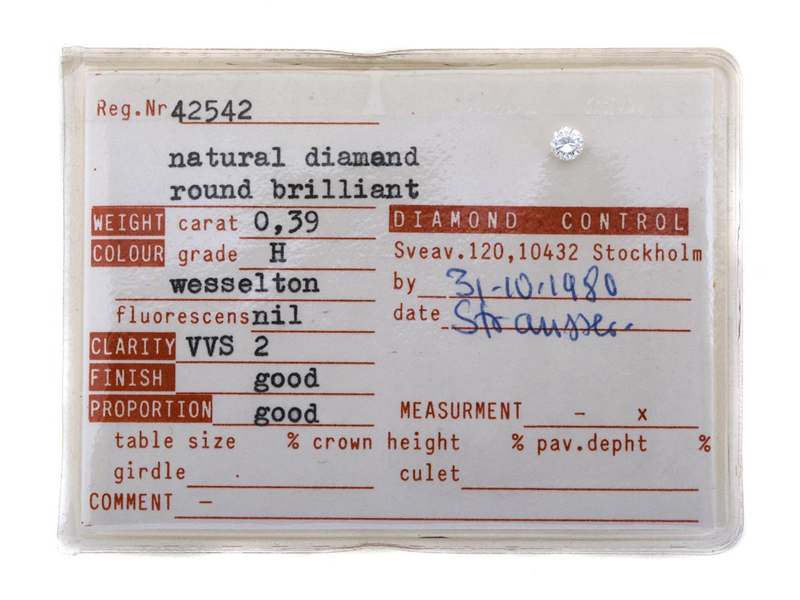 Reg.Nr 42542
natural diamand
round brilliant
WEIGHT carat 0,39
DIAMOND CONTROL
COLOUR grade H
Sveav.120,10432 Stockholm
wesselton
by 31-10.1980
fluorescens nil
date Strausser.
CLARITY VVS 2
FINISH good
PROPORTION good
MEASURMENT – x
table size % crown height % pav.depht %
girdle
culet
COMMENT –